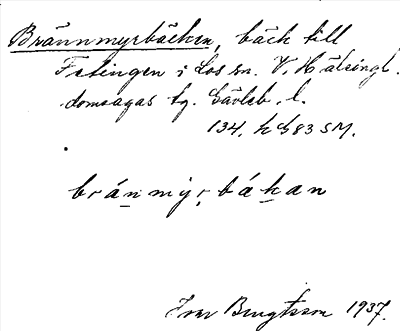 Brännmyrbäcken, bäck till
Fetingen i Los sn. V. Hälsingl.
domsagas tg. Gävleb. l.
134, h G83 SM.
bránmýr,bákan
Ivar Bengtsson 1937.